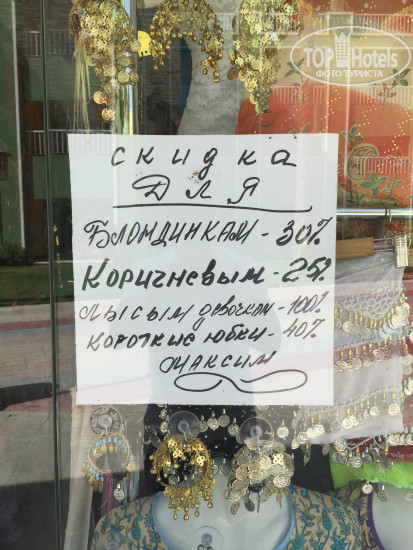 TOP Hotels
ФОТО ТУРИСТА
скидка
Для
Бломдинкам - 30%
Коричневым - 25%
Лысым девочкам - 100%
Короткие юбки - 40%
Максим